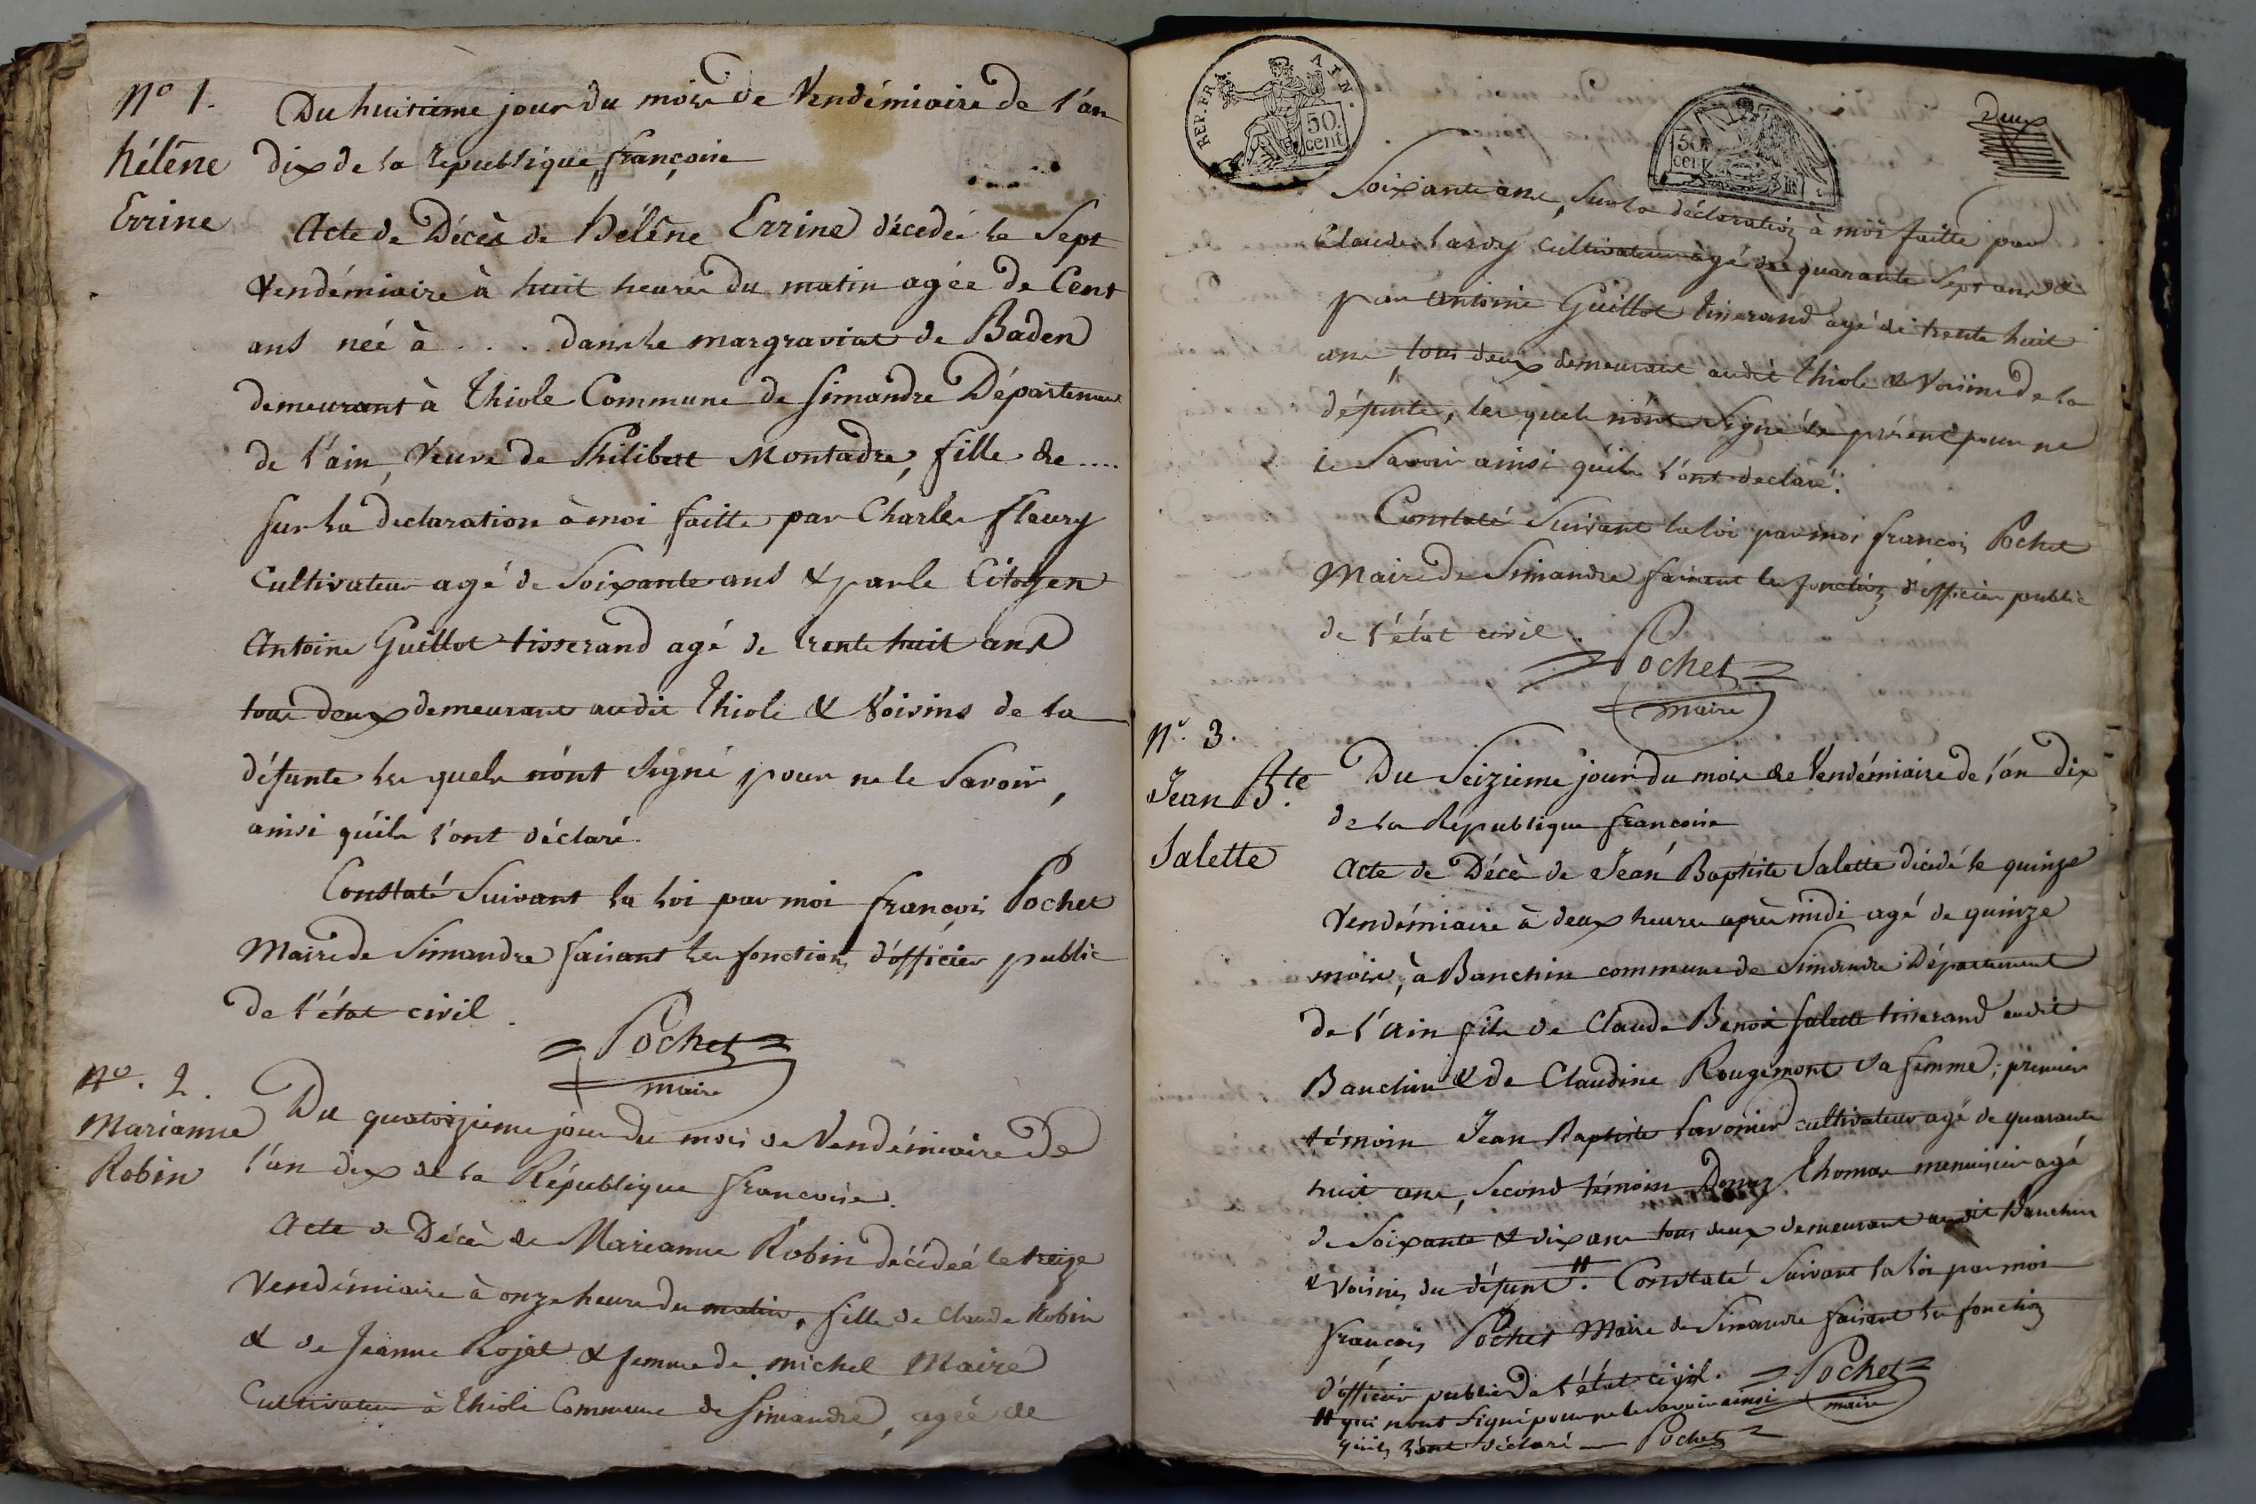 N.o 1.
hélêne
Errine
Du huitieme jour du mois de Vendémiaire de l'an
dix de la république françoise
Acte de Décès de Hélêne Errine décedée le Sept
Vendémiaire à huit heures du matin agée de Cent
ans née à . . . . dans le margraviat de Baden
demeurant à Thiole Commune de Simandre Département
de l'ain, Veuve de Philibert Montadre, fille de ....
sur la declaration à moi faitte par Charles fleury
Cultivateur agé de Soixante ans & par le Citoyen
Antoine Guillot tisserand agé de trente huit ans
tous deux demeurant audit Thiole & Voisins de la
défunte les quels n'ont Signé pour ne le Savoir,
ainsi qu'ils l'ont déclaré.
Constaté Suivant la loi par moi françois Pochet
Maire de Simandre faisant les fonctions d'officier public
de l'état civil.
Pochet
maire
N.o 2.
Marianne
Robin
Du quatorzieme jour du mois de Vendémiaire de
l'an dix de la République francoise.
Acte de Décès de Marianne Robin décédeé le treize
Vendémiaire à onze heure du matin, fille de Claude Robin
& de Jeanne Rojat & femme de michel Maire
Cultivateur à Thiole Commune de Simandre, agée de
REP. FRA. 50 cent. AIN.
50 cent
Deux
Soixante ans, Sur la déclaration à moi faitte par
Claude Laroy cultivateur agé de quarante Sept ans &
par antoine Guillot tisserand agé de trente huit
ans tous deux demeurant audit Thiole & Voisins de la
défunte, les quels n'ont Signé le présent pour ne
le Savoir ainsi qu'ils l'ont declaré.
Constaté Suivant la loi par moi françois Pochet
Maire de Simandre faisant les fonctions d'officier public
de l'état civil.
Pochet
maire
N.o 3.
Jean B.te
Salette
Du Seizieme jour du mois de Vendémiaire de l'an dix
de la République francoise
Acte de Décès de Jean Baptiste Salette décédé le quinze
Vendémiaire à deux heures après midi agé de quinze
mois, à Banchin commune de Simandre Département
de l'ain fils de Claude Benoit Salette tisserand audit
Banchin & de Claudine Rougemont Sa femme; premier
témoin Jean Baptiste Favonier cultivateur agé de quarante
huit ans, Second témoin Donez Thomas menuisier agé
de Soixante & dix ans tous deux demeurant audit Banchin
& Voisins du défunt #. Constaté Suivant la loi par moi
François Pochet Maire de Simandre faisant les fonctions
d'officier public de l'état civil. Pochet
maire
# qui n'ont Signé pour ne le Savoir ainsi
qu'ils l'ont déclaré Pochet